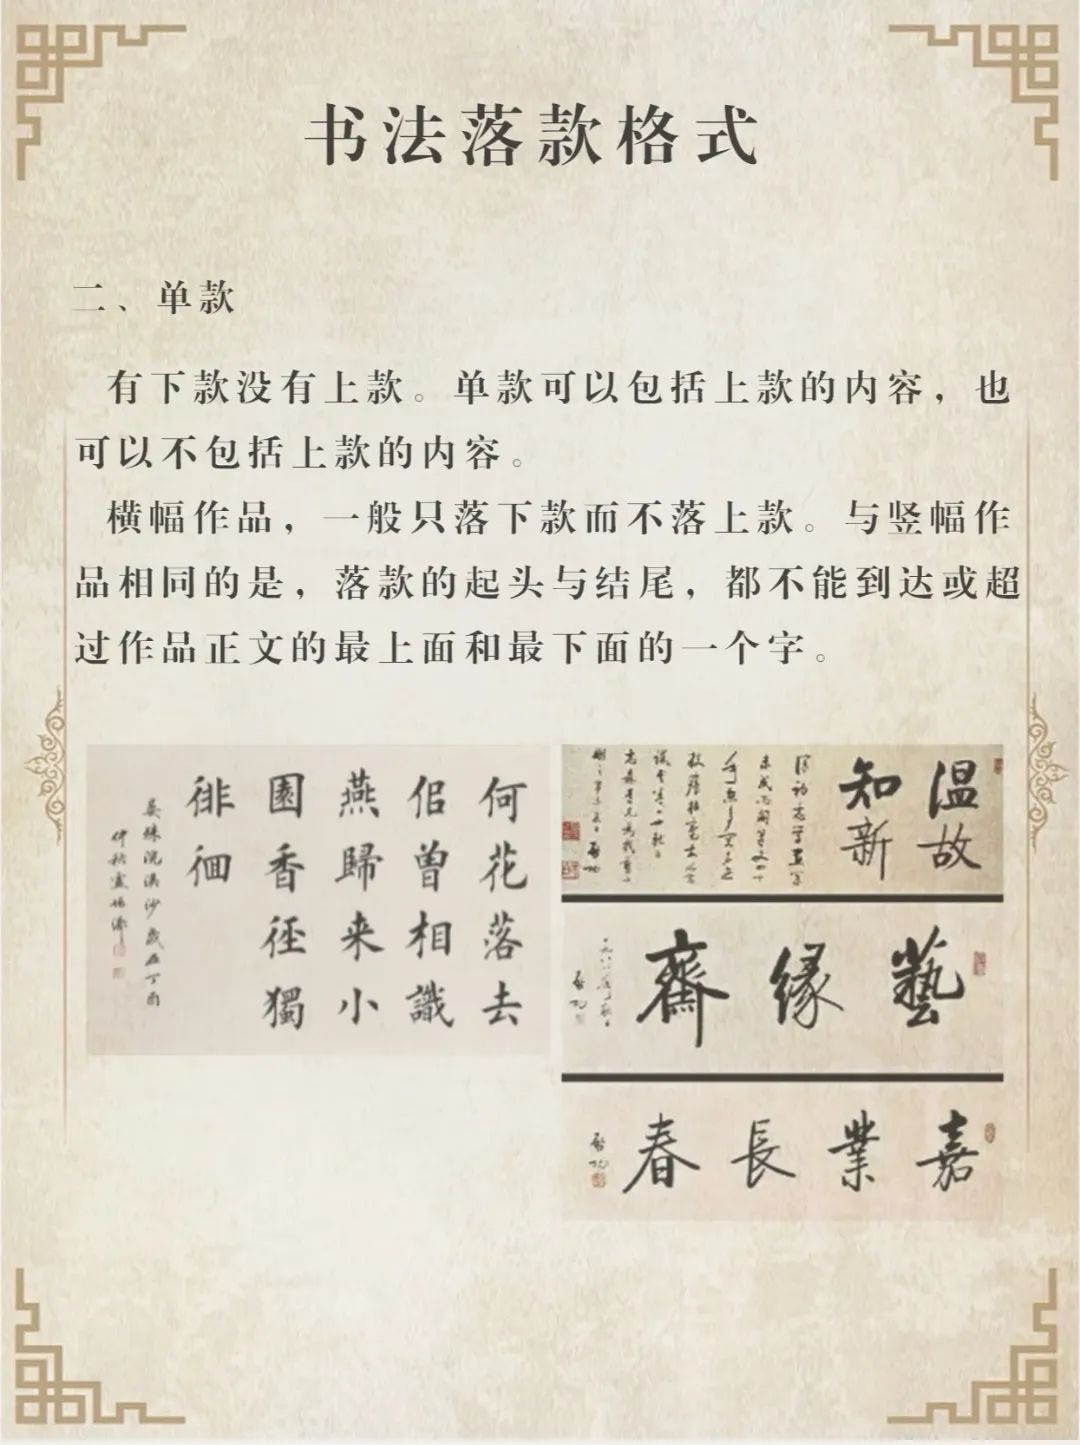 书法落款格式
二、单款
有下款没有上款。单款可以包括上款的内容，也
可以不包括上款的内容。
横幅作品，一般只落下款而不落上款。与竖幅作
品相同的是，落款的起头与结尾，都不能到达或超
过作品正文的最上面和最下面的一个字。
何花落去
佀曾相識
燕歸来小
園香徑獨
徘徊
晏殊浣溪沙歲在丁酉
仲秋
温故
知新
藝緣齋
启功
嘉業長春
启功